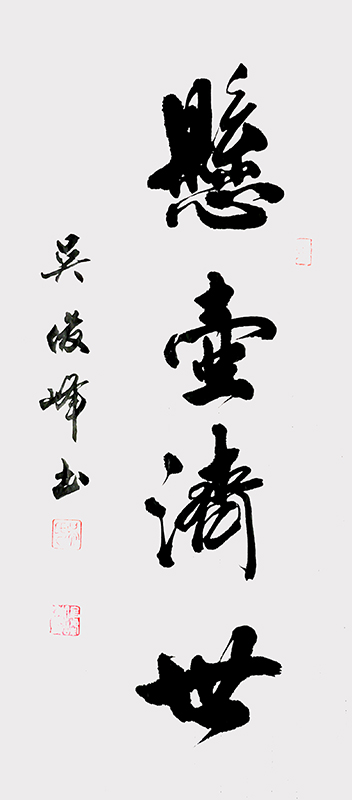 懸壺濟世
吴俊峰书